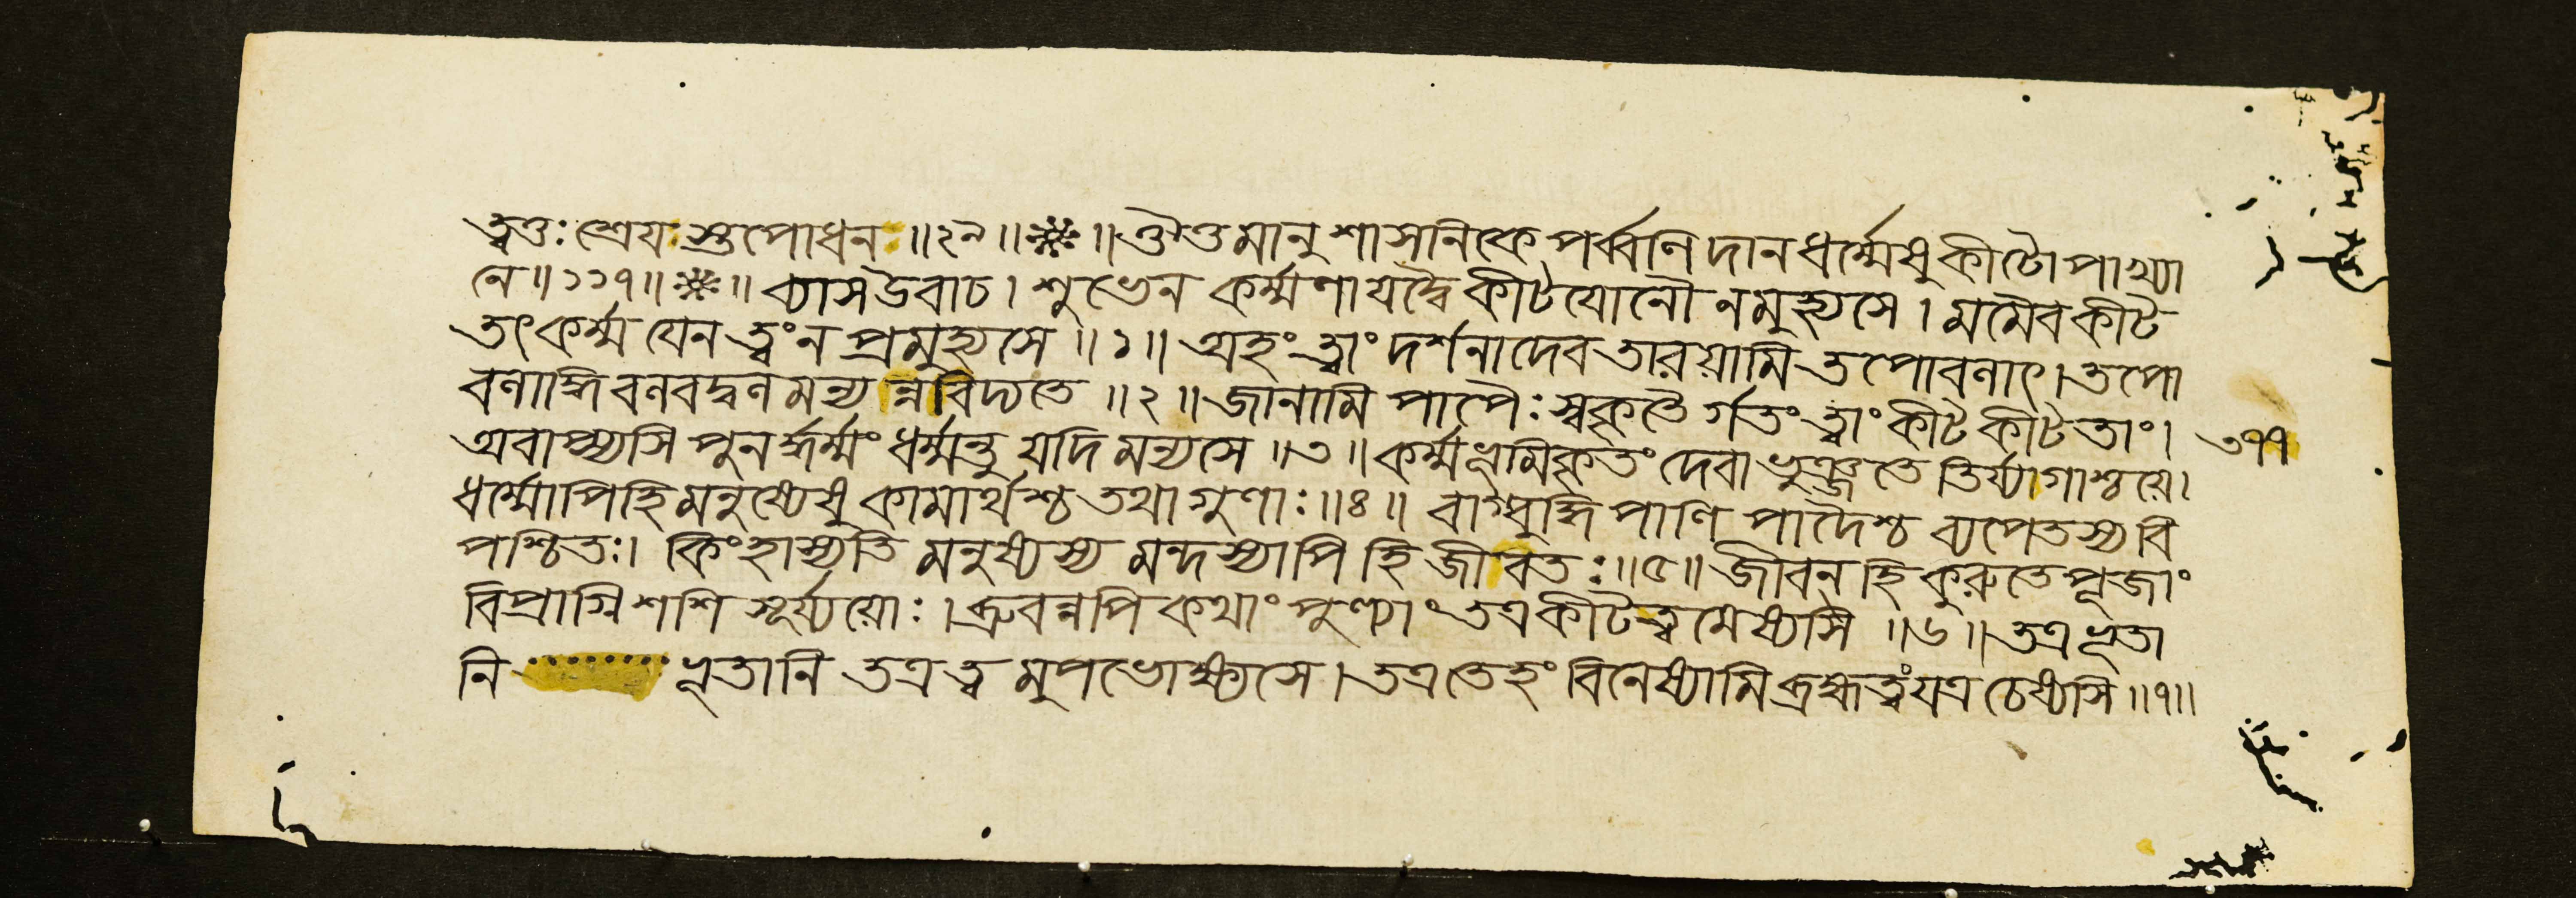 ত্বত্তঃ শ্রেয়স্তপোধন ॥২৯॥❋॥ ঔত্তমানুশাসনিকে পর্ব্বণি দানধর্ম্মেষু কীটোপাখ্যা
নে॥১১৭॥❋॥ ব্যাসউবাচ। শুভেন কর্ম্মণা যদ্বৈ কীটযোনৌ নমুহ্যসে। মমৈব কীট
তৎকর্ম্ম যেন ত্বং ন প্রমুহ্যসে ॥১॥ অহং ত্বাং দর্শনাদেব তারয়ামি তপোবনাৎ। তপো
বনাদ্ধি বনবদ্বনমন্যন্নবিদ্যতে ॥২॥ জানামি পাপৈঃ স্বকৃতৈর্গতং ত্বাং কীট কীটতাং।
অবাপ্স্যসি পুনর্দ্ধর্ম্মং ধর্ম্মন্তু যদি মন্যসে ॥৩॥ কর্ম্মভূমিকৃতং দেবা ভুঞ্জতে তির্য্যগাশ্চয়ে।
ধর্ম্মোপিহি মনুষ্যেষু কামার্থশ্চ তথা গুণাঃ॥৪॥ বাগ্বুদ্ধি পাণি পাদৈশ্চ ব্যপেতস্য বি
পশ্চিতঃ। কিং হাস্যতি মনুষ্যস্য মন্দস্যাপি হি জীবতঃ॥৫॥ জীবন্ হি কুরুতে পূজাং
বিপ্রাগ্নি শশি সূর্য্যয়োঃ। ব্রুবন্নপি কথাং পুণ্যাং তত্র কীটত্বমেষ্যসি ॥৬॥ তত্র ভূতা
নি ভূতানি তত্র ত্বমুপভোক্ষ্যসে। তত্র তেহং বিনেষ্যামি ব্রহ্মত্বং যত্র চেষ্যসি ॥৭॥
৩৭৭